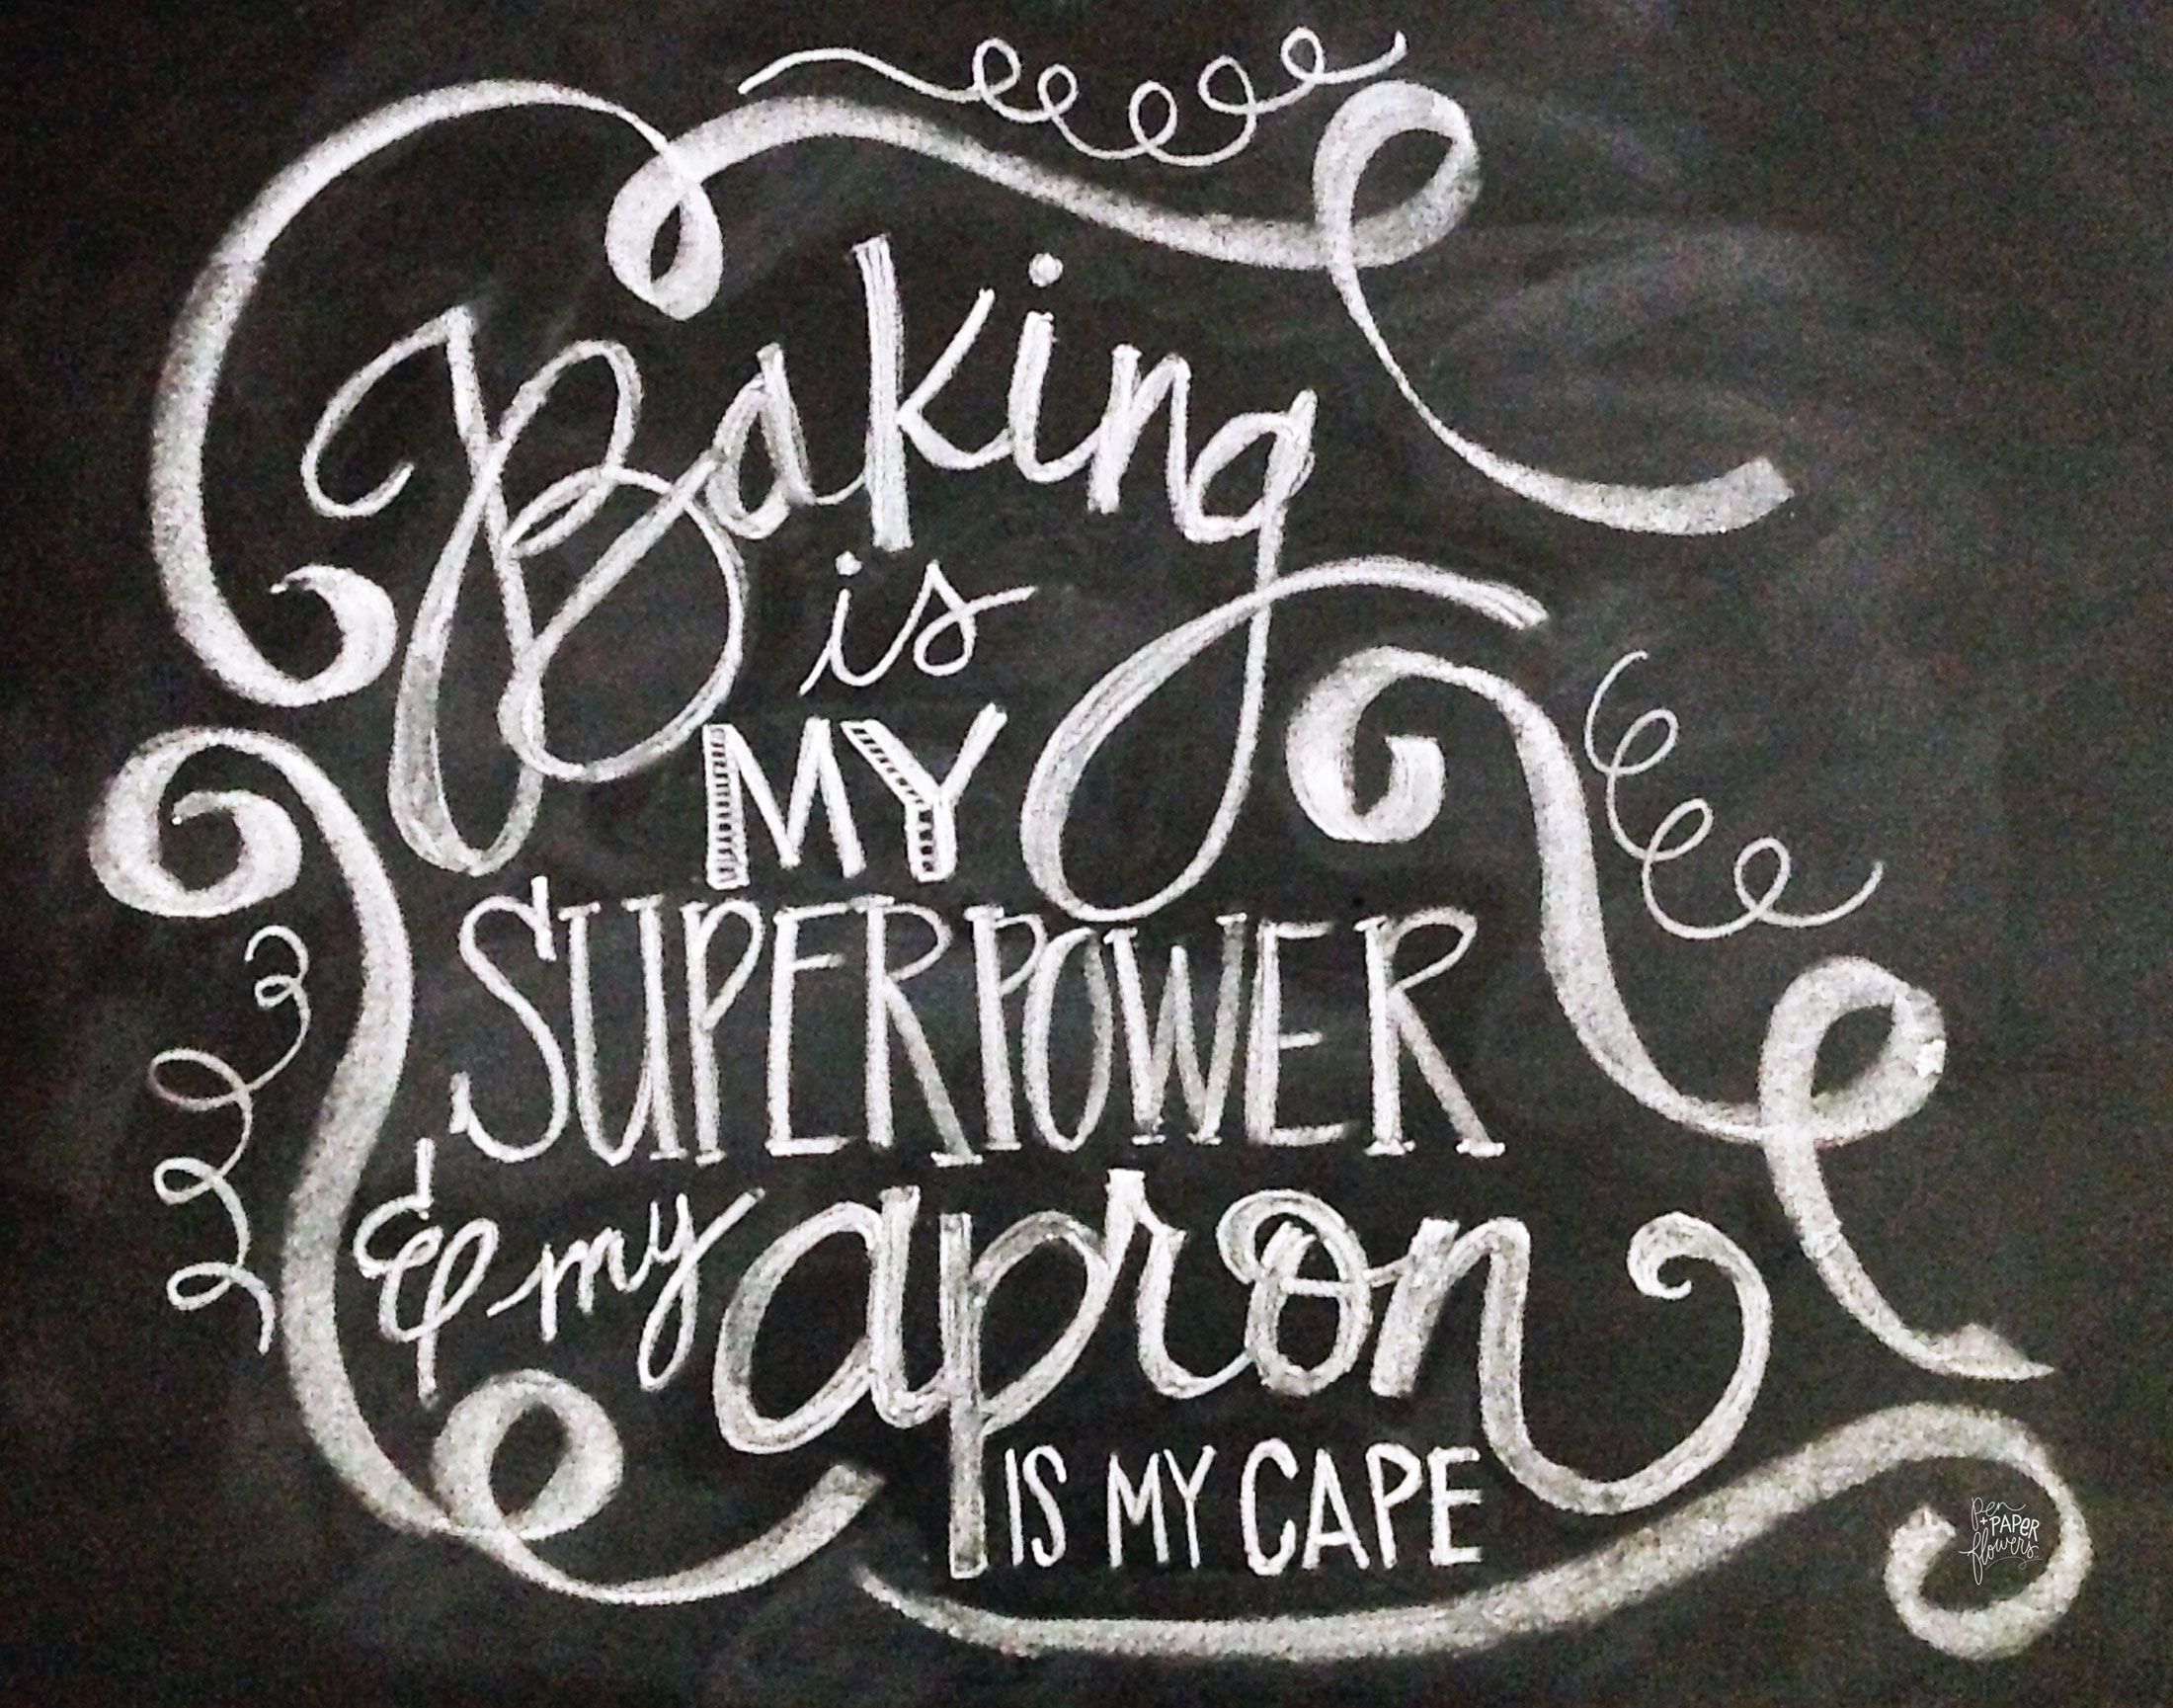 Baking
is
MY
SUPERPOWER
& my apron
IS MY CAPE
Pen
+ PAPER
flowers